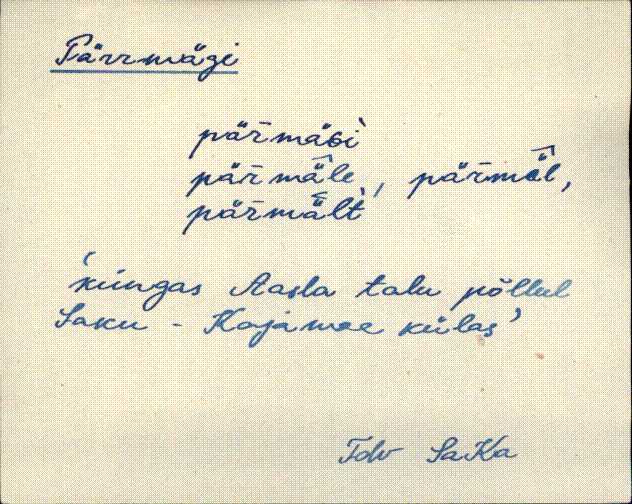 Pärrmägi
pär̄mäɢì
pär̄mäle, pär̄mäl,
pär̄mält
'küngas Aasla talu põllul
Saku - Kajamae külas'
Tdv SaKa